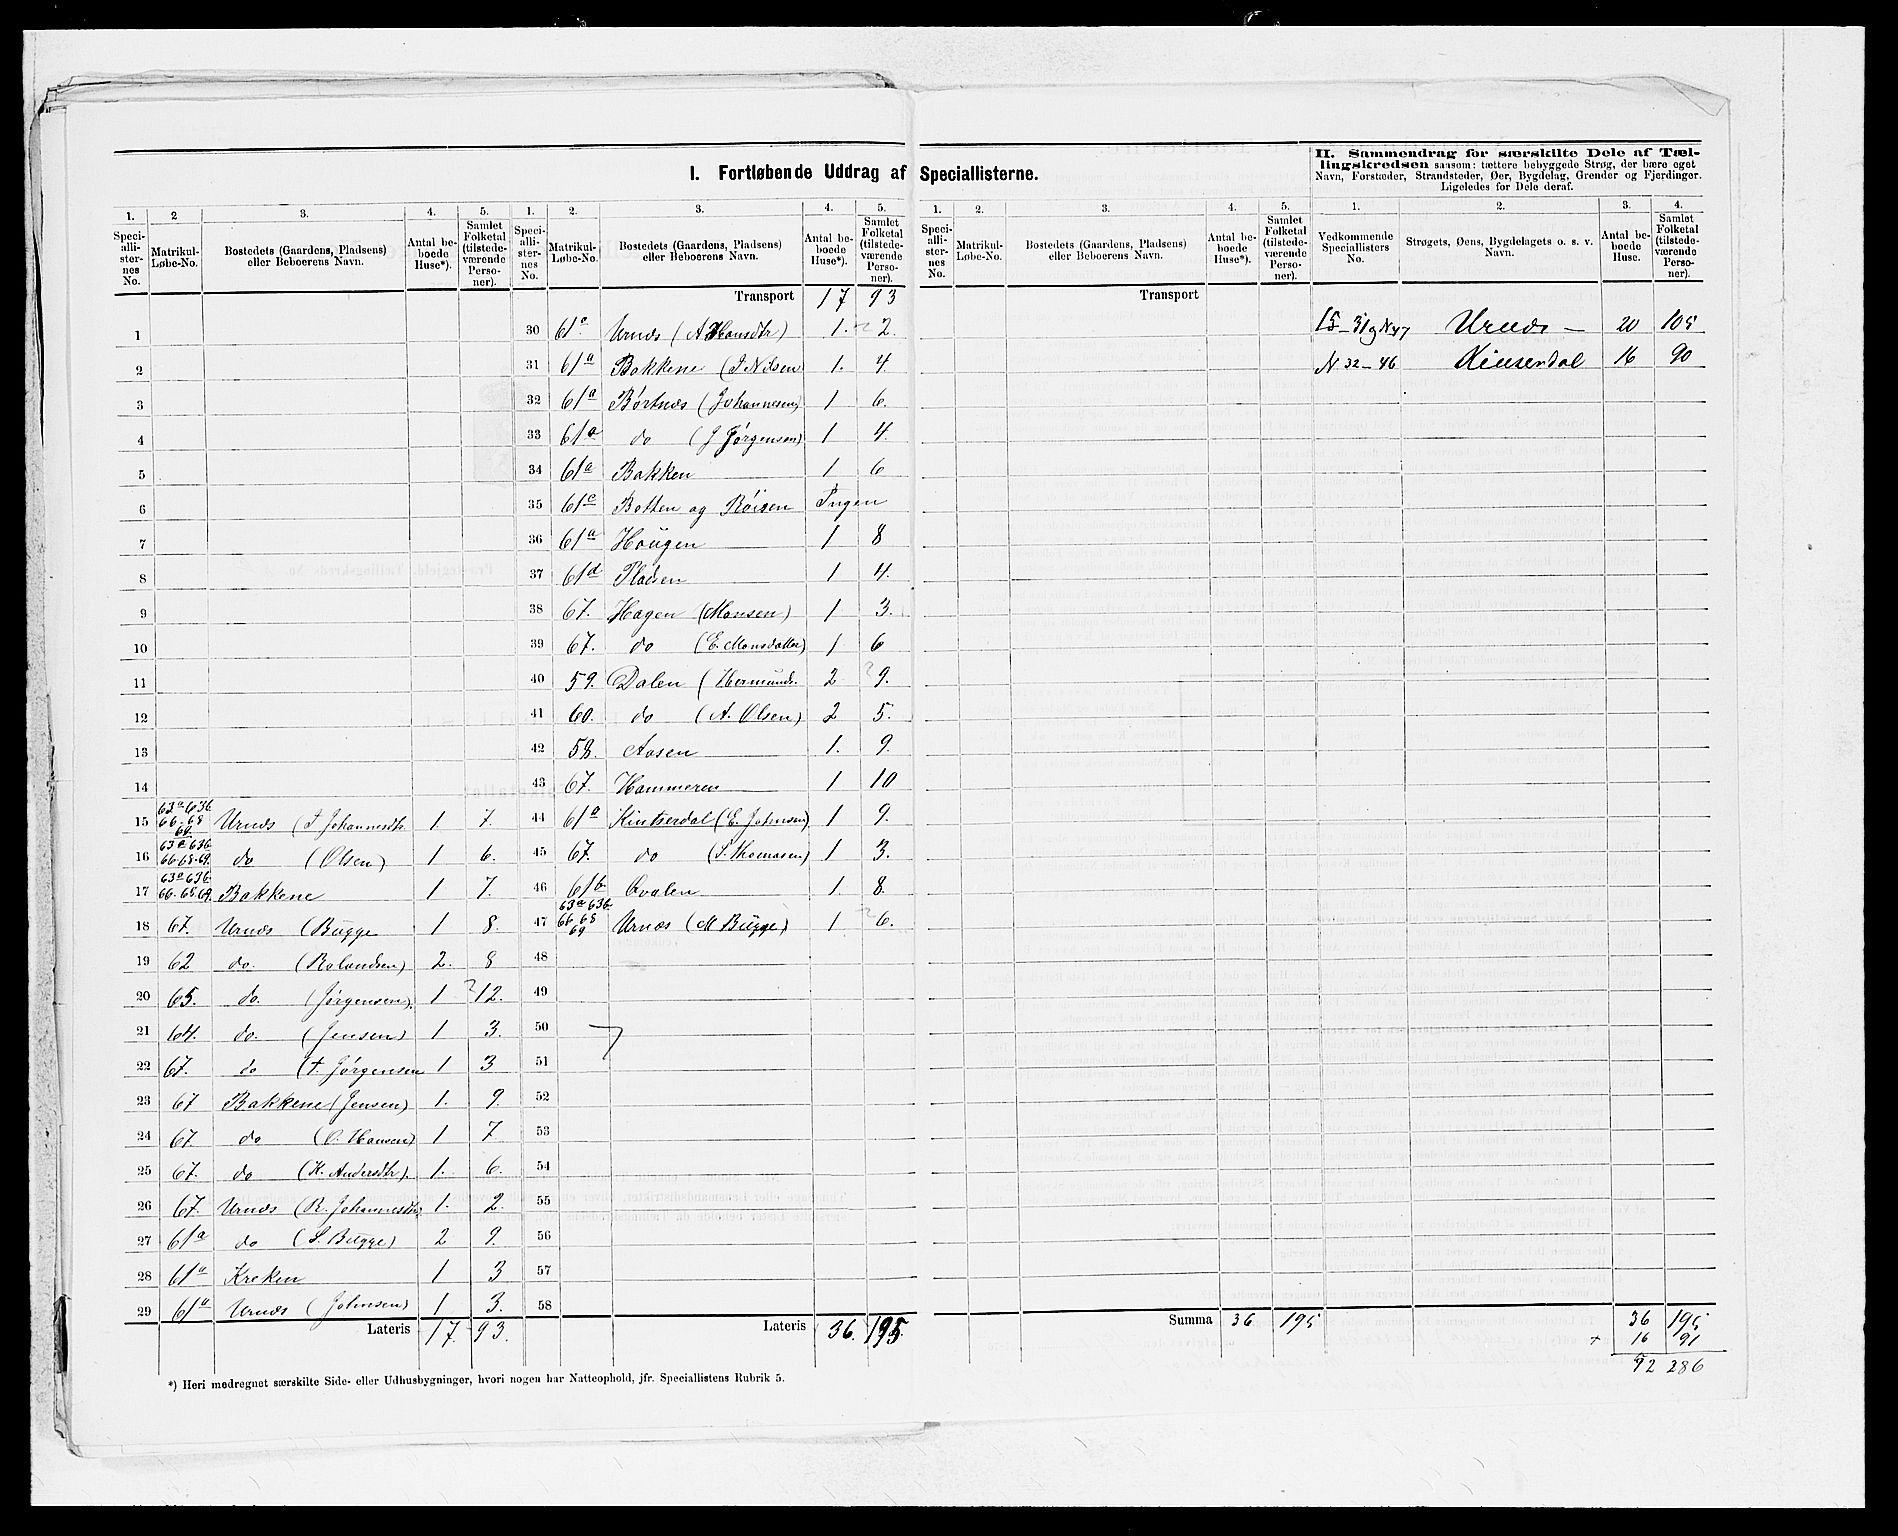 I. Fortløbende Uddrag af Speciallisterne.
II. Sammendrag for særskilte Dele af Tæl-
lingskredsen saasom: tættere bebyggede Strøg, der bære eget
Navn, Forstæder, Strandsteder, Øer, Bygdelag, Grender og Fjerdinger.
Ligeledes for Dele deraf.
1. 2 3. 4. 5. 1. 2. 3. 4. 5. 1. 2. 3. 4. 5. 1. 2. 3. 4.
Speci-alli-ster-nes No. Matrikul-Løbe-No. Bostedets (Gaardens, Pladsens) eller Beboerens Navn. Antal be-boede Huse*). Samlet Folketal (tilstede-værende Perso-ner).
Speci-alli-ster-nes No. Matrikul-Løbe-No. Bostedets (Gaardens, Pladsens) eller Beboerens Navn. Antal be-boede Huse*). Samlet Folketal (tilstede-værende Perso-ner).
Speci-alli-ster-nes No. Matrikul-Løbe-No. Bostedets (Gaardens, Pladsens) eller Beboerens Navn. Antal be-boede Huse*). Samlet Folketal (tilstede-værende Perso-ner).
Vedkommende Speciallisters No. Strøgets, Øens, Bygdelagets o. s. v. Navn. Antal be-boede Huse. Samlet Folketal (tilstede-værende Perso-ner).
1
2
3
4
5
6
7
8
9
10
11
12
13
14
15 63a-63b- 66-68 69 Urnæs (J Johannesdtr. 1. 7.
16 63a 63b- 66-68-69. do (Olsen) 1 6.
17 63a 63b- 66-68.69. Bakkene 1 7.
18 67. Urnæs (Bugge 1 8.
19 62 do. (Rolandsen) 2. 8
20 65. do. (Jørgensen). 1 12.
21 64. do. (Jensen) 1 3.
22 67. do (T. Jørgensen 1 3
23 67 Bakkene (Jensen) 1. 9.
24 67. do (O. Hansen) 1 7
25 67. do (K. Andersdtr). 1. 6.
26 67. Urnæs (R. Johannesdtr) 1. 2.
27 61a do (S. Bugge) 2 9.
28 61a Kreken 1 3
29 61a Urnæs (Johnsen) 1 3.
Lateris 17. 93.
Transport 17 93
30 61a. Urnæs (A Hansdtr) 1. 2.
31 61a Bakkene (J Nilsen 1. 4.
32 61a Børtnæs (Johannesen) 1 6.
33 61a do (J Jørgensen) 1 4.
34 61a Bakken 1 6
35 61c Botten og Røisen Ingen
36 61a Haugen 1 8
37 61d Pladsen 1 4.
38 67. Hagen (Monsen) 1 3.
39 67. do (E. Monsdatter) 1 6
40 59. Dalen (Hermunds. 2 9.
41 60. do (A. Olsen) 2 5.
42 58. Aasen 1. 9.
43 67. Hammeren 1 10
44 61a Kintserdal (E. Johnsen) 1 9.
45 67. do (S. Thomasen) 1 3.
46 61b Qvalen 1. 8.
47 63a 63b- 66 68 69 Urnæs (M Bugge) 1 6.
48
49
50
51
52
53
54
55
56
57
58
Lateris 36. 195.
Transport
Summa 36 195
15-31 og N 47 Urnæs — 20 105
N 32-46 Kinserdal 16 90
36 195
+ 16 91
286
*) Heri medregnet særskilte Side- eller Udhusbygninger, hvori nogen har Natteophold, jfr. Speciallistens Rubrik 5.